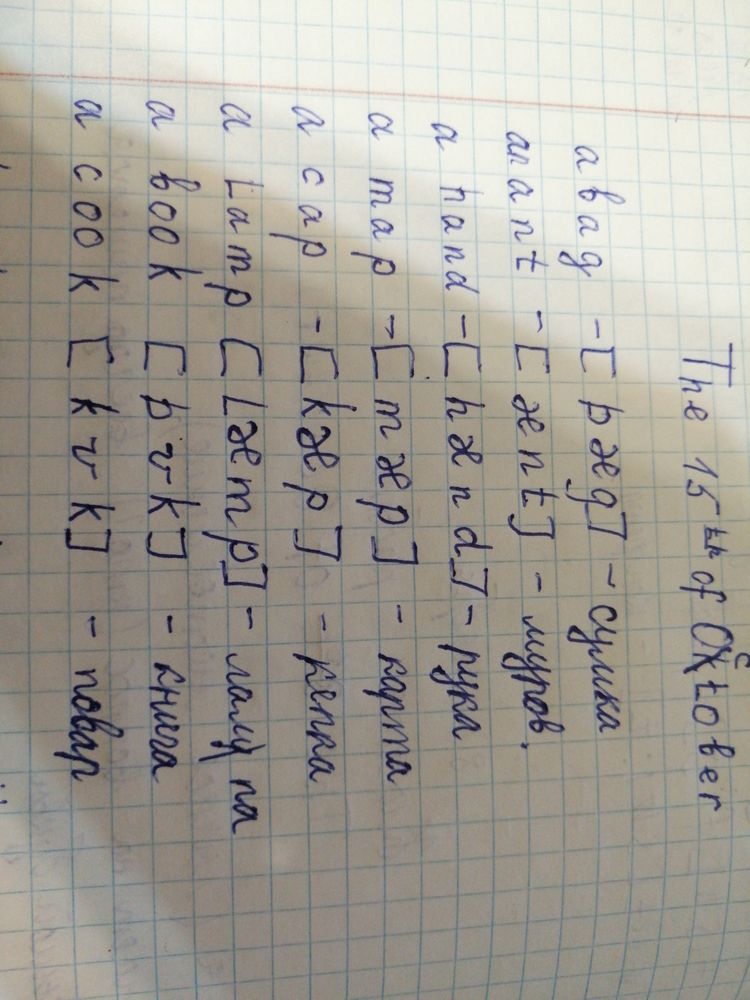 The 15th of October
a bag - [bæg] - сумка
an ant - [ænt] - муров.
a hand - [hænd] - рука
a map - [mæp] - карта
a cap - [kæp] - кепка
a lamp [læmp] - лампа
a book [bʊk] - книга
a cook [kʊk] - повар